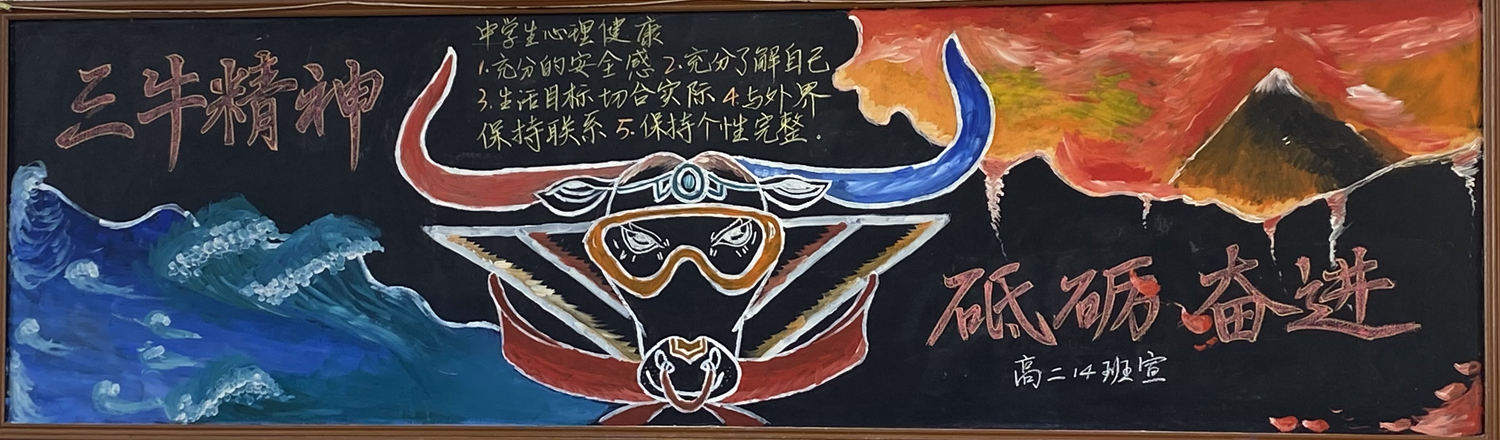 三牛精神
中学生心理健康
1.充分的安全感 2.充分了解自己
3.生活目标切合实际 4.与外界
保持联系 5.保持个性完整。
砥砺奋进
高二14班宣